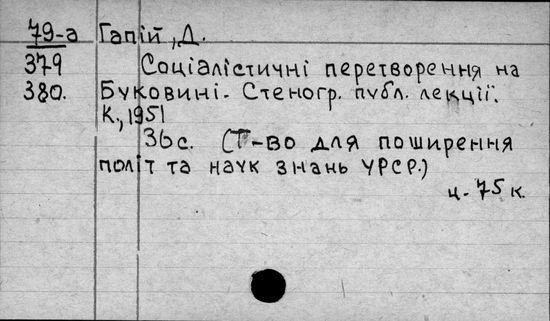 79-а Гапій, Д.
379 Соціалістичні перетворення на
380. Буковині. Стеногр. публ. лекції.
К., 1951
36с. (Т-во для поширення
політ та наук знань УРСР.)
ц. 75 к.